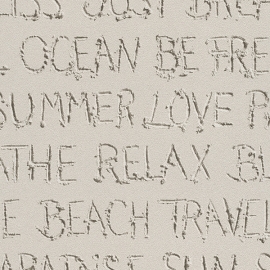 ISS JUST BREA
L OCEAN BE FRE
SUMMER LOVE R
ATHE RELAX BL
E BEACH TRAVEL
PARADISE SUN S